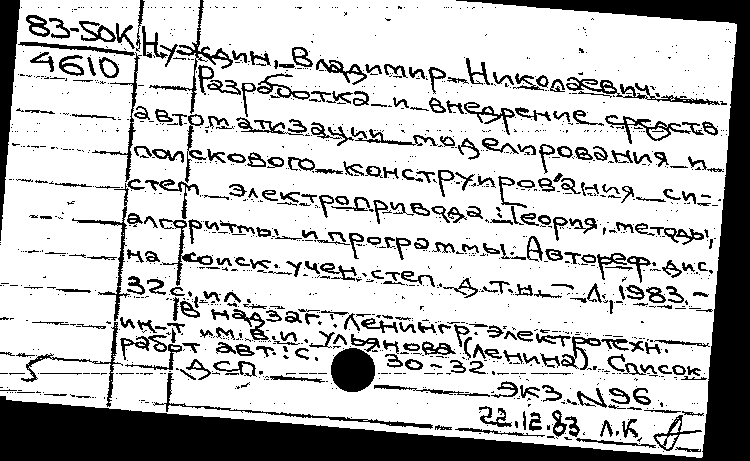 83-50К
4610
Нуждин, Владимир Николаевич.
Разработка и внедрение средств
автоматизации моделирования и
поискового конструирования си-
стем электропривода: Теория, методы,
алгоритмы и программы. Автореф. дис.
на соиск. учен. степ. д.т.н. - Л., 1983. -
32 с., ил.
В надзаг.: Ленингр. электротехн.
ин-т им. В.И. Ульянова (Ленина). Список
работ авт.: с. 30-32.
ДСП.
5
ЭКЗ. N96.
22.12.83 Л.К.